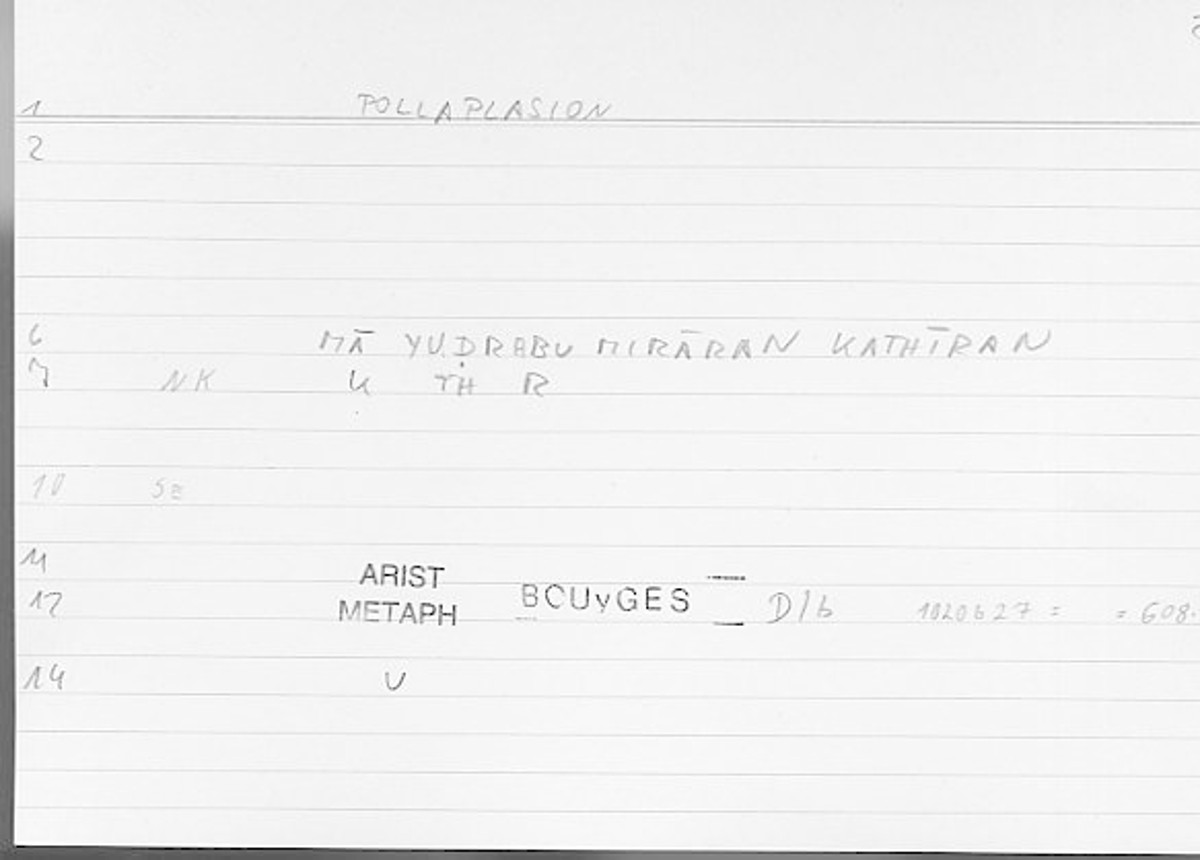 1 POLLAPLASION
2
6 MĀ YUḌRABU MIRĀRAN KATHĪRAN
7 NK K TH R
10 SE
11 ARIST
12 METAPH BOUyGES D/b 1020b27 = = 608.
14 V